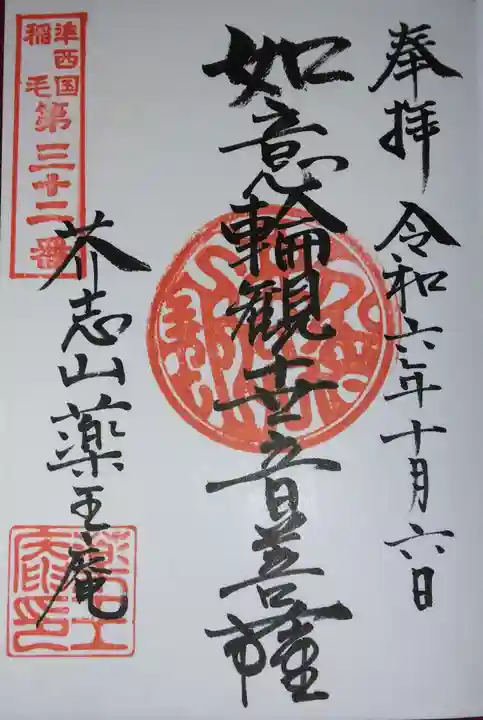 奉拝
令和六年十月六日
如意輪観世音菩薩
準西国
稲毛
第三十二番
芥志山薬王庵